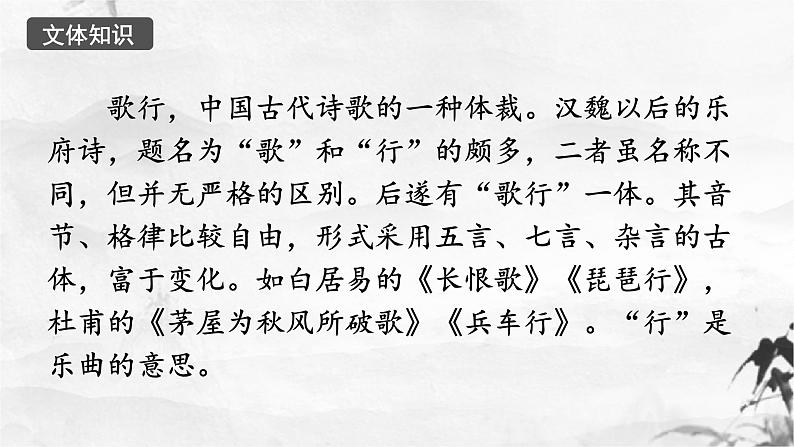 文体知识
歌行，中国古代诗歌的一种体裁。汉魏以后的乐
府诗，题名为“歌”和“行”的颇多，二者虽名称不
同，但并无严格的区别。后遂有“歌行”一体。其音
节、格律比较自由，形式采用五言、七言、杂言的古
体，富于变化。如白居易的《长恨歌》《琵琶行》，
杜甫的《茅屋为秋风所破歌》《兵车行》。“行”是
乐曲的意思。